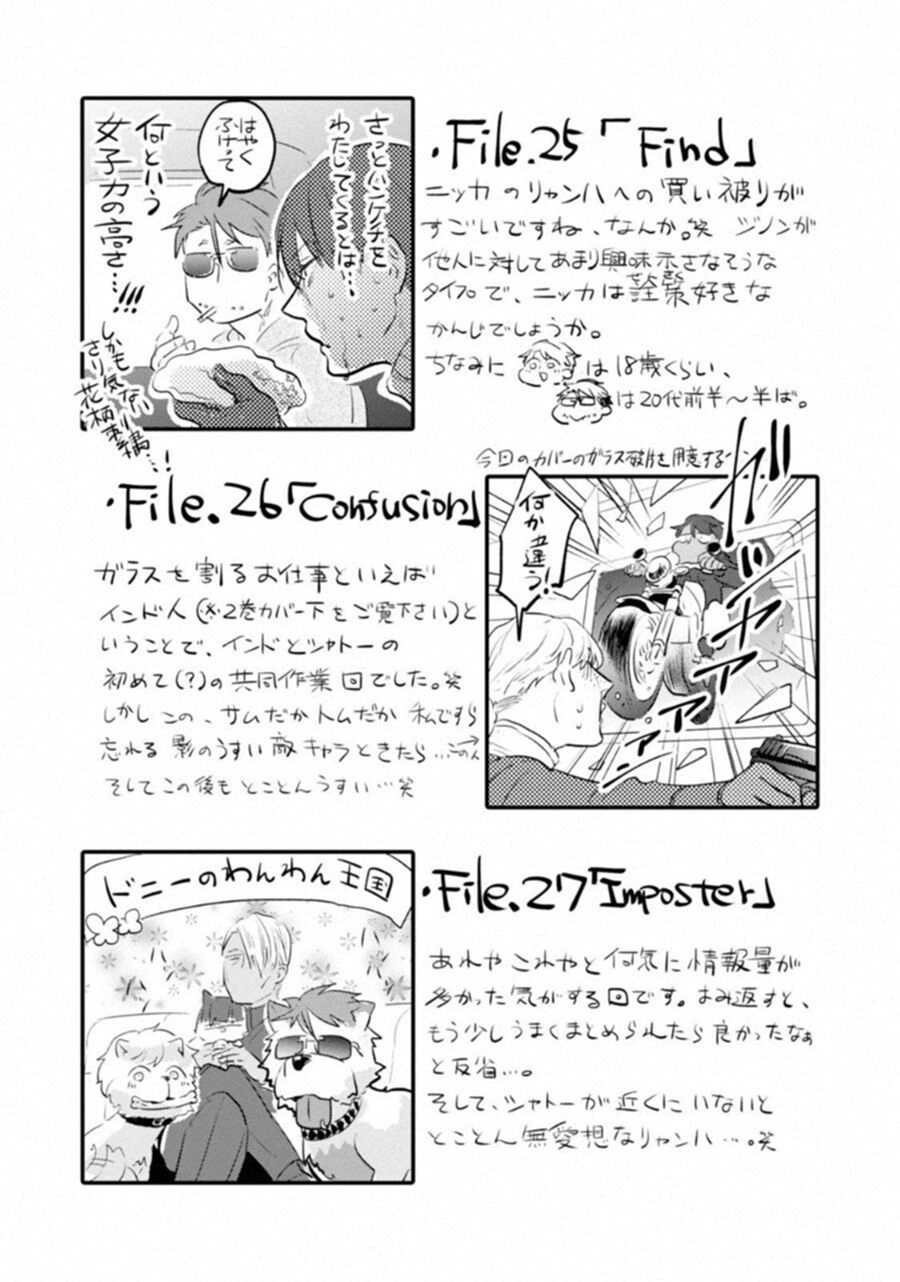 ・File.25「Find」
ニッカのリャンハへの買い被りが
すごいですね、なんか。笑 ジノンが
他人に対してあまり興味示さなそうな
タイプで、ニッカは詮索好きな
かんじでしょうか。
ちなみに は18歳くらい、
は20代前半〜半ば。
さっとハンケチを
わたしてくるとは…
はやく
ふけって
何という
女子力の高さ…!!!
しかも気ない
さりげ
花柄刺繍…!
・File.26「Confusion」
ガラスを割るお仕事といえば
インド人(※2巻カバー下をご覧下さい)と
いうことで、インドとシャトーの
初めて(?)の共同作業回でした。笑
しかしこの、サムだかトムだか私ですら
忘れる影のうすい敵キャラときたら…この人→
そしてこの後もとことんうすい…笑
今回のカバーのガラス破片を用意するイン
何か違う!
ガシャアアアアン
・File.27「Imposter」
あれやこれやと何気に情報量が
多かった気がする回です。よみ返すと、
もう少しうまくまとめられたら良かったなぁ
と反省…。
そして、シャトーが近くにいないと
とことん無愛想なリャンハ…。笑
ドニーのわんわん王国